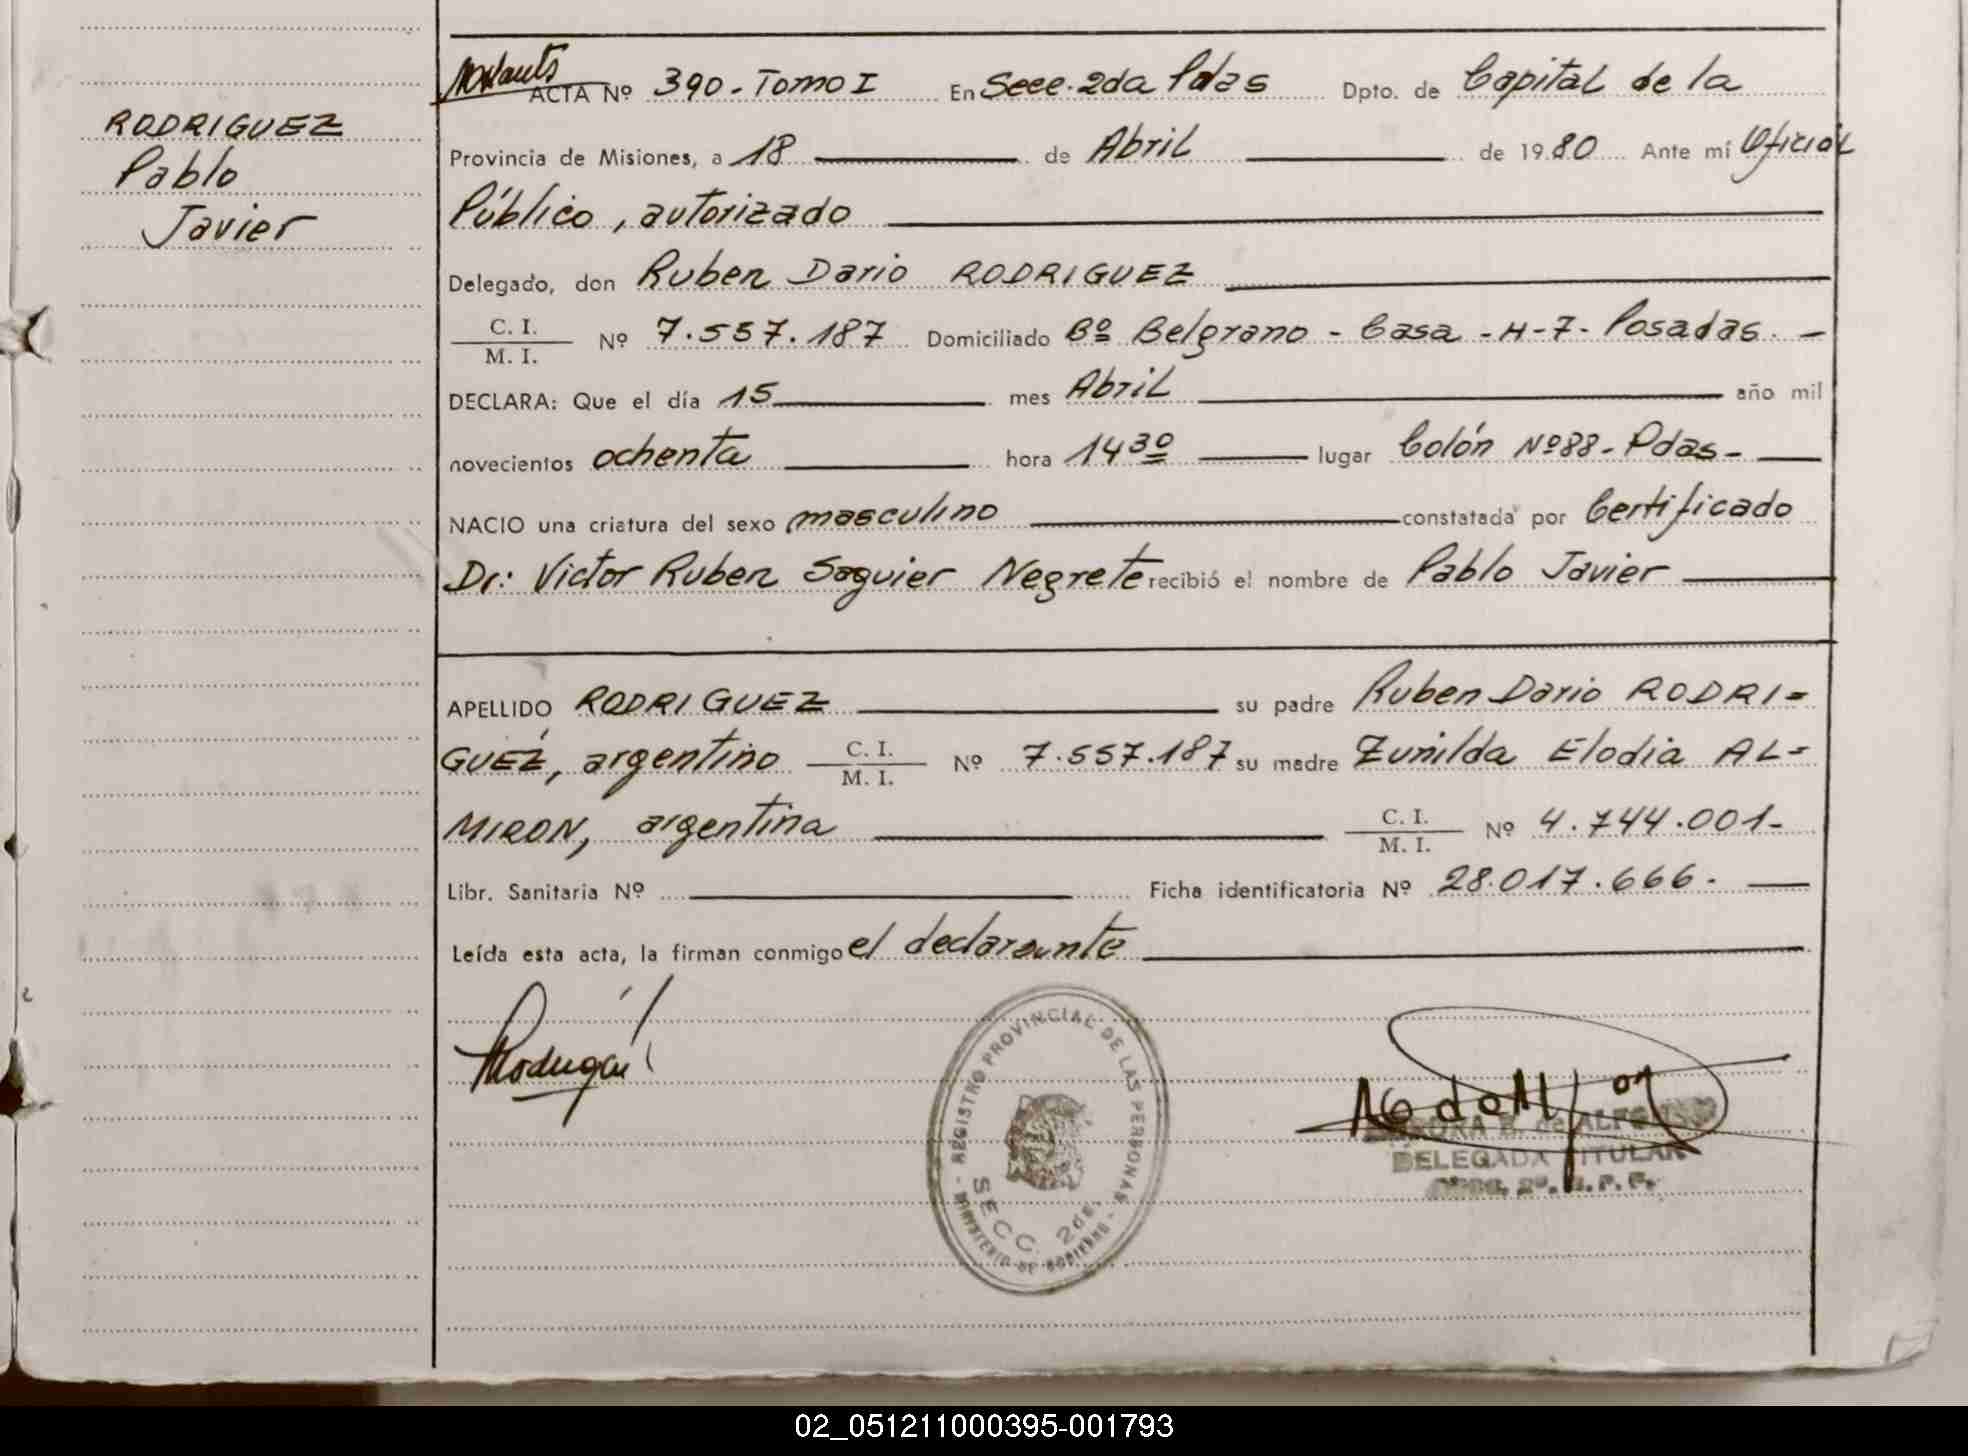 RODRIGUEZ
Pablo
Javier
ACTA Nº 390 - Tomo I En Secc. 2da Pdas Dpto. de Capital de la
Provincia de Misiones, a 18 de Abril de 1980 Ante mí Oficial
Público, autorizado
Delegado, don Ruben Dario RODRIGUEZ
C. I.
M. I. Nº 7.557.187 Domiciliado Bº Belgrano - Casa - H - 7 - Posadas. -
DECLARA: Que el día 15 mes Abril año mil
novecientos ochenta hora 14 30 lugar Colón Nº 88 - Pdas -
NACIO una criatura del sexo masculino constatada por Certificado
Dr: Victor Ruben Saguier Negrete recibió el nombre de Pablo Javier
APELLIDO RODRIGUEZ su padre Ruben Dario RODRI=
GUEZ, argentino C. I. M. I. Nº 7.557.187 su madre Zunilda Elodia AL=
MIRON, argentina C. I. M. I. Nº 4.744.001-
Libr. Sanitaria Nº Ficha identificatoria Nº 28.017.666. -
Leída esta acta, la firman conmigo el declarante
REGISTRO PROVINCIAL DE LAS PERSONAS - MINISTERIO DE GOBIERNO -
SECC. 2da.
B. de ALFONSO
DELEGADA TITULAR
02_051211000395-001793